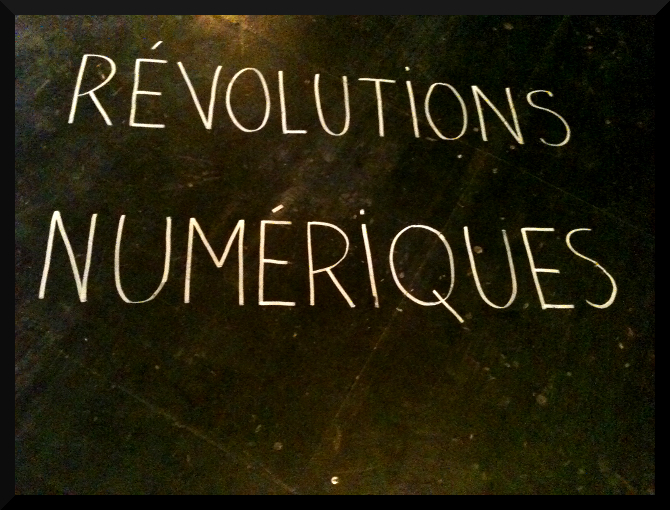 RÉVOLUTIONS
NUMÉRIQUES